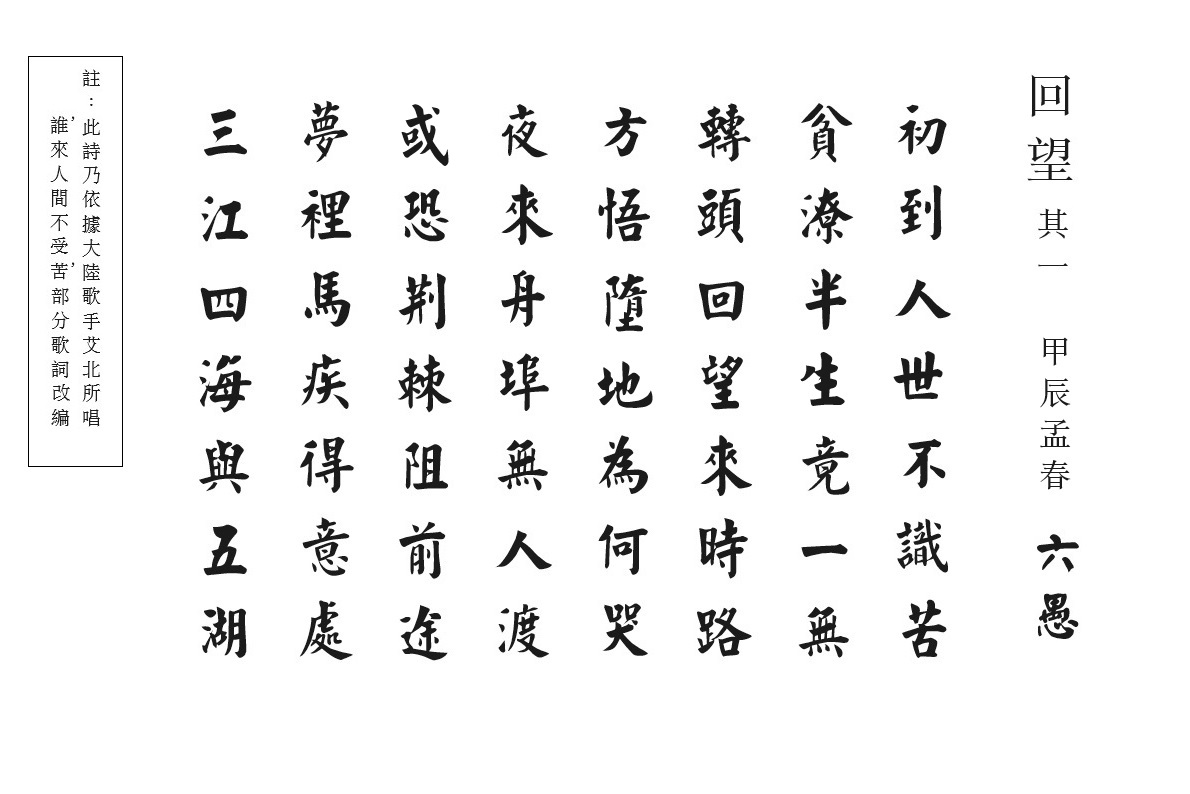 回望 其一 甲辰孟春 六愚
初到人世不識苦
貧潦半生竟一無
轉頭回望來時路
方悟墮地為何哭
夜來丹埠無人渡
或恐荆棘阻前途
夢裡馬疾得意處
三江四海與五湖
註：此詩乃依據大陸歌手艾北所唱
，誰來人間不受苦，部分歌詞改編